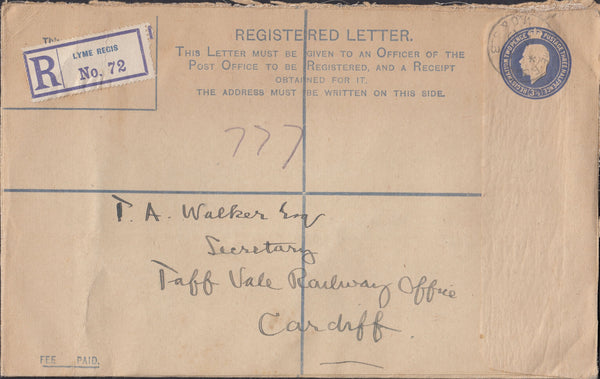 REGISTERED LETTER.
THIS LETTER MUST BE GIVEN TO AN OFFICER OF THE
POST OFFICE TO BE REGISTERED, AND A RECEIPT
OBTAINED FOR IT.
THE ADDRESS MUST BE WRITTEN ON THIS SIDE.
This
LYME REGIS
R No. 72
777
T. A. Walker Esq
Secretary
Taff Vale Railway Office
Cardiff.
FEE PAID.